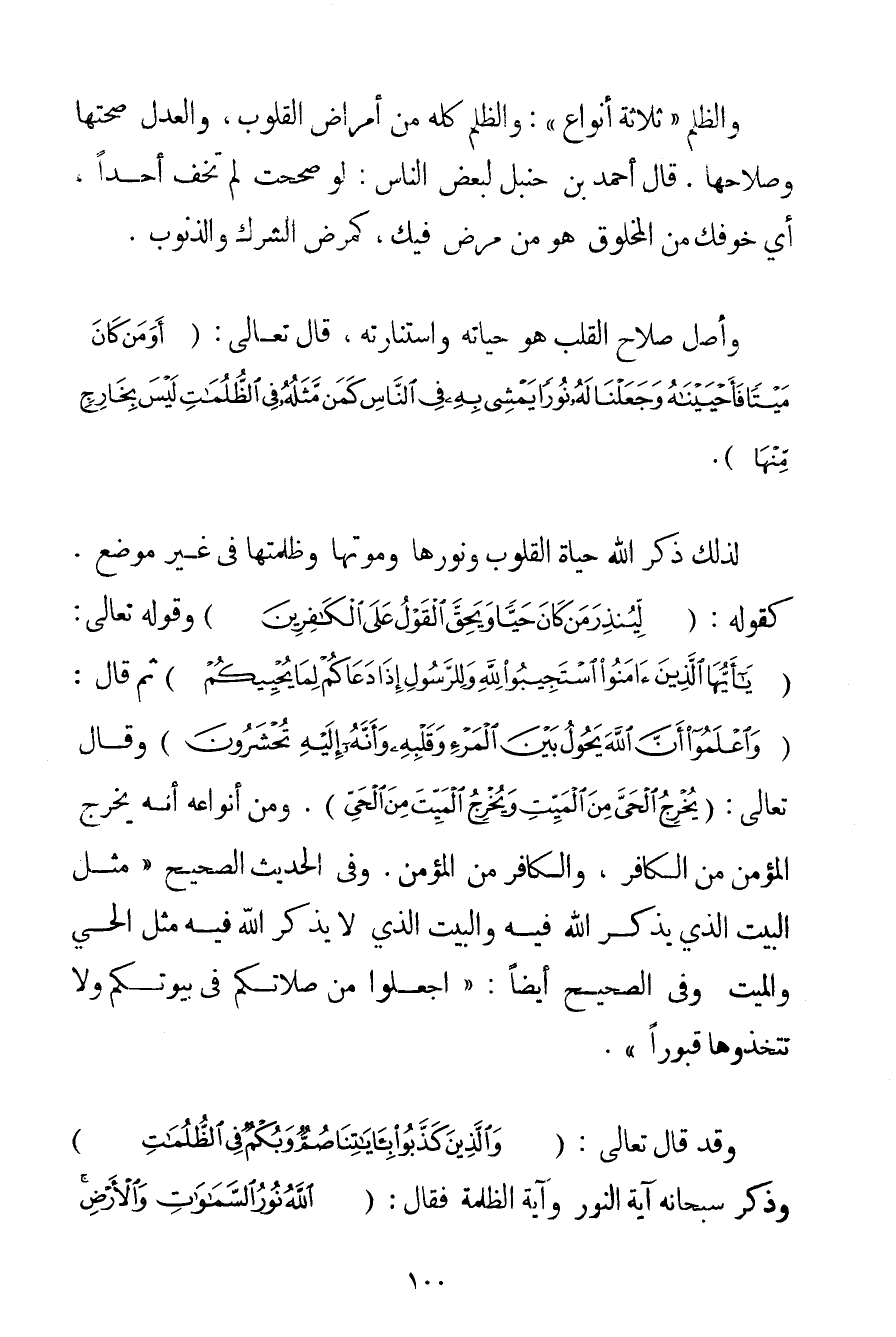 والظلم « ثلاثة أنواع » : والظلم كله من أمراض القلوب ، والعدل صحتها
وصلاحها . قال أحمد بن حنبل لبعض الناس : لو صححت لم تخف أحــداً ،
أي خوفك من المخلوق هو من مرض فيك ، كمرض الشرك والذنوب .
وأصل صلاح القلب هو حياته واستنارته ، قال تعــالى : ( أَوَمَن كَانَ
مَيْتًا فَأَحْيَيْنَٰهُ وَجَعَلْنَا لَهُۥ نُورًا يَمْشِى بِهِۦ فِى ٱلنَّاسِ كَمَن مَّثَلُهُۥ فِى ٱلظُّلُمَٰتِ لَيْسَ بِخَارِجٍ
مِّنْهَا ) .
لذلك ذكر الله حياة القلوب ونورها وموتها وظلمتها فى غــير موضع .
كقوله : ( لِّيُنذِرَ مَن كَانَ حَيًّا وَيَحِقَّ ٱلْقَوْلُ عَلَى ٱلْكَٰفِرِينَ ) وقوله تعالى :
( يَٰٓأَيُّهَا ٱلَّذِينَ ءَامَنُوا۟ ٱسْتَجِيبُوا۟ لِلَّهِ وَلِلرَّسُولِ إِذَا دَعَاكُمْ لِمَا يُحْيِيكُمْ ) ثم قال :
( وَٱعْلَمُوٓا۟ أَنَّ ٱللَّهَ يَحُولُ بَيْنَ ٱلْمَرْءِ وَقَلْبِهِۦ وَأَنَّهُۥٓ إِلَيْهِ تُحْشَرُونَ ) وقــال
تعالى : ( يُخْرِجُ ٱلْحَىَّ مِنَ ٱلْمَيِّتِ وَيُخْرِجُ ٱلْمَيِّتَ مِنَ ٱلْحَىِّ ) . ومن أنواعه أنــه يخرج
المؤمن من الــكافر ، والــكافر من المؤمن . وفى الحديث الصحيح « مثــل
البيت الذي يذكــر الله فيــه والبيت الذي لا يذكر الله فيــه مثل الحــي
والميت وفى الصحيــح أيضاً : « اجعــلوا من صلاتــكم فى بيوتــكم ولا
تتخذوها قبوراً » .
وقد قال تعالى : ( وَٱلَّذِينَ كَذَّبُوا۟ بِـَٔايَٰتِنَا صُمٌّ وَبُكْمٌ فِى ٱلظُّلُمَٰتِ )
وذكر سبحانه آية النور وآية الظلمة فقال : ( ٱللَّهُ نُورُ ٱلسَّمَٰوَٰتِ وَٱلْأَرْضِ ۚ
١٠٠